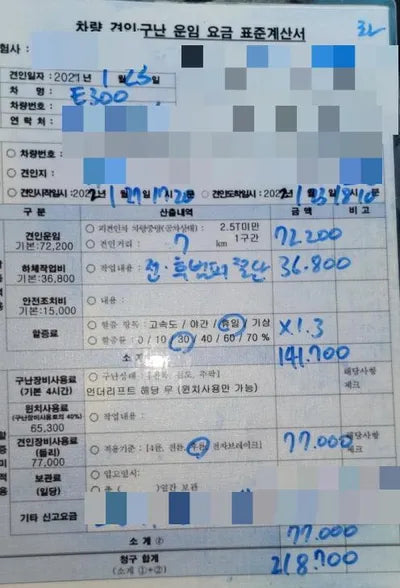 차량 견인·구난 운임 요금 표준계산서
험사 :
견인일자 : 2021년 1월
차 명 : E300
차량번호 :
연 락 처 :
○ 차량번호 :
○ 견인지 :
○ 견인시작일시 : 202 ○ 견인도착일시 : 202
구 분 산출내역 금 액 비 고
견인운임 ○ 피견인차 차량중량(공차상태) : 2.5T미만
기본:72,200 ○ 견인거리 : 7 km 1구간 72.200
하체작업비 ○ 작업내용 : 전·후범퍼 절단 36.800
기본:36,800
안전조치비 ○ 내용
기본:15,000
할증료 ○ 할증 항목 : 고속도 / 야간 / 휴일 / 기상 X1.3
○ 할증율 : 0 / 10 / 30 / 40 / 60 / 70 %
소 계 141.700
구난장비사용료 ○ 구난상태 해당사항
(기본 4시간) 언더리프트 해당 무 (윈치사용만 가능) 체크
윈치사용료 ○ 작업내용 :
(구난장비사용료의 40%)
65,300
견인장비사용료 ○ 적용기준 : 전자브레이크] 77.000 해당사항
(돌리) 체크
77,000
보관료 ○ 입고일시:
(일당) 일간 보관
기타 신고요금
소 계 ② 77.000
청구 합계 218.700
(소계 ①+②)